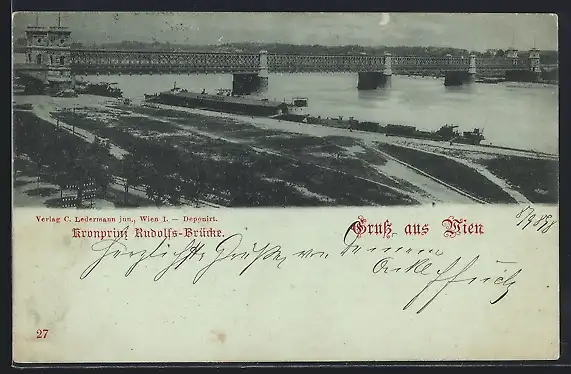 Verlag C. Ledermann jun., Wien I. — Deponirt.
Kronprinz Rudolfs-Brücke.
Gruß aus Wien
8/9 898
Herzlichste Grüße von Deinem
Onkel
27